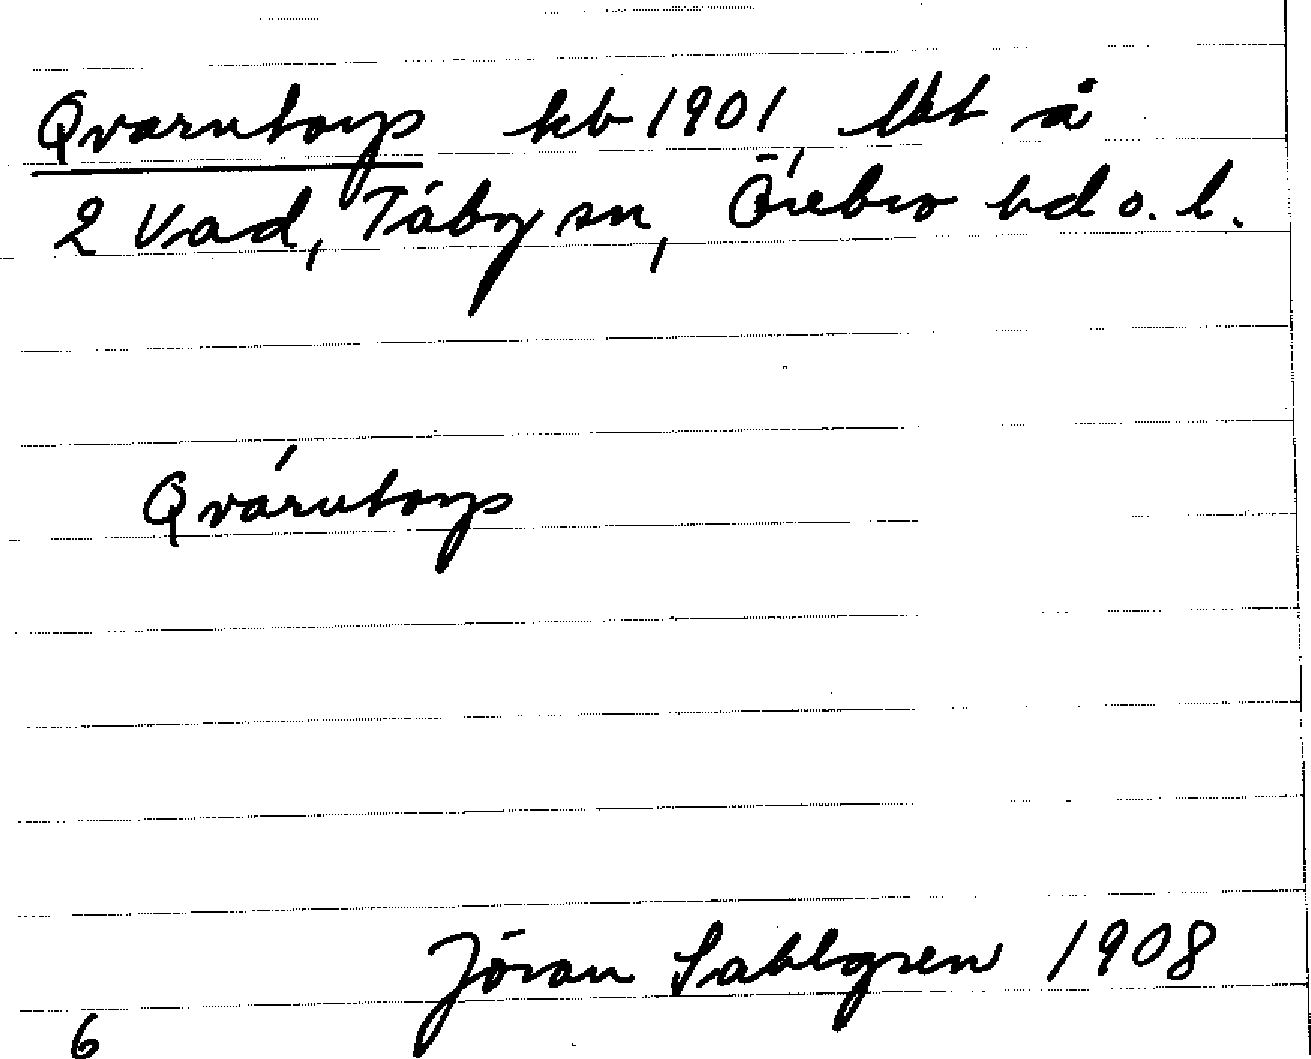 Qvarntorp kb 1901 lht å
2 Vad, Täby sn, Örebro hd o. l.
Qvárntorp
Jöran Sahlgren 1908
6